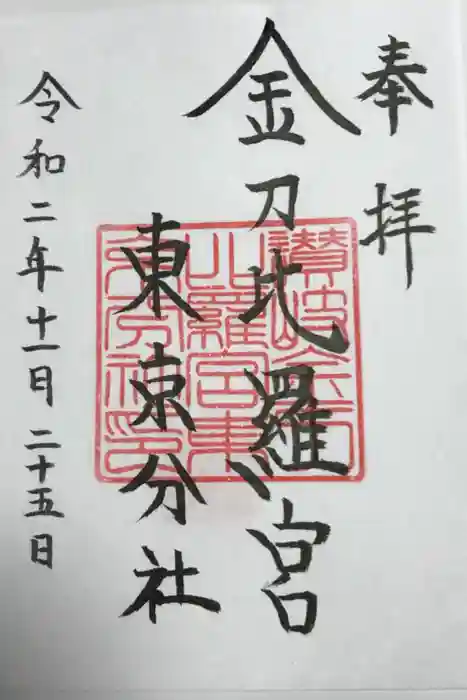 奉拝
金刀比羅宮
東京分社
令和二年十一日二十五日
讃岐金刀
比羅宮東
京分社印